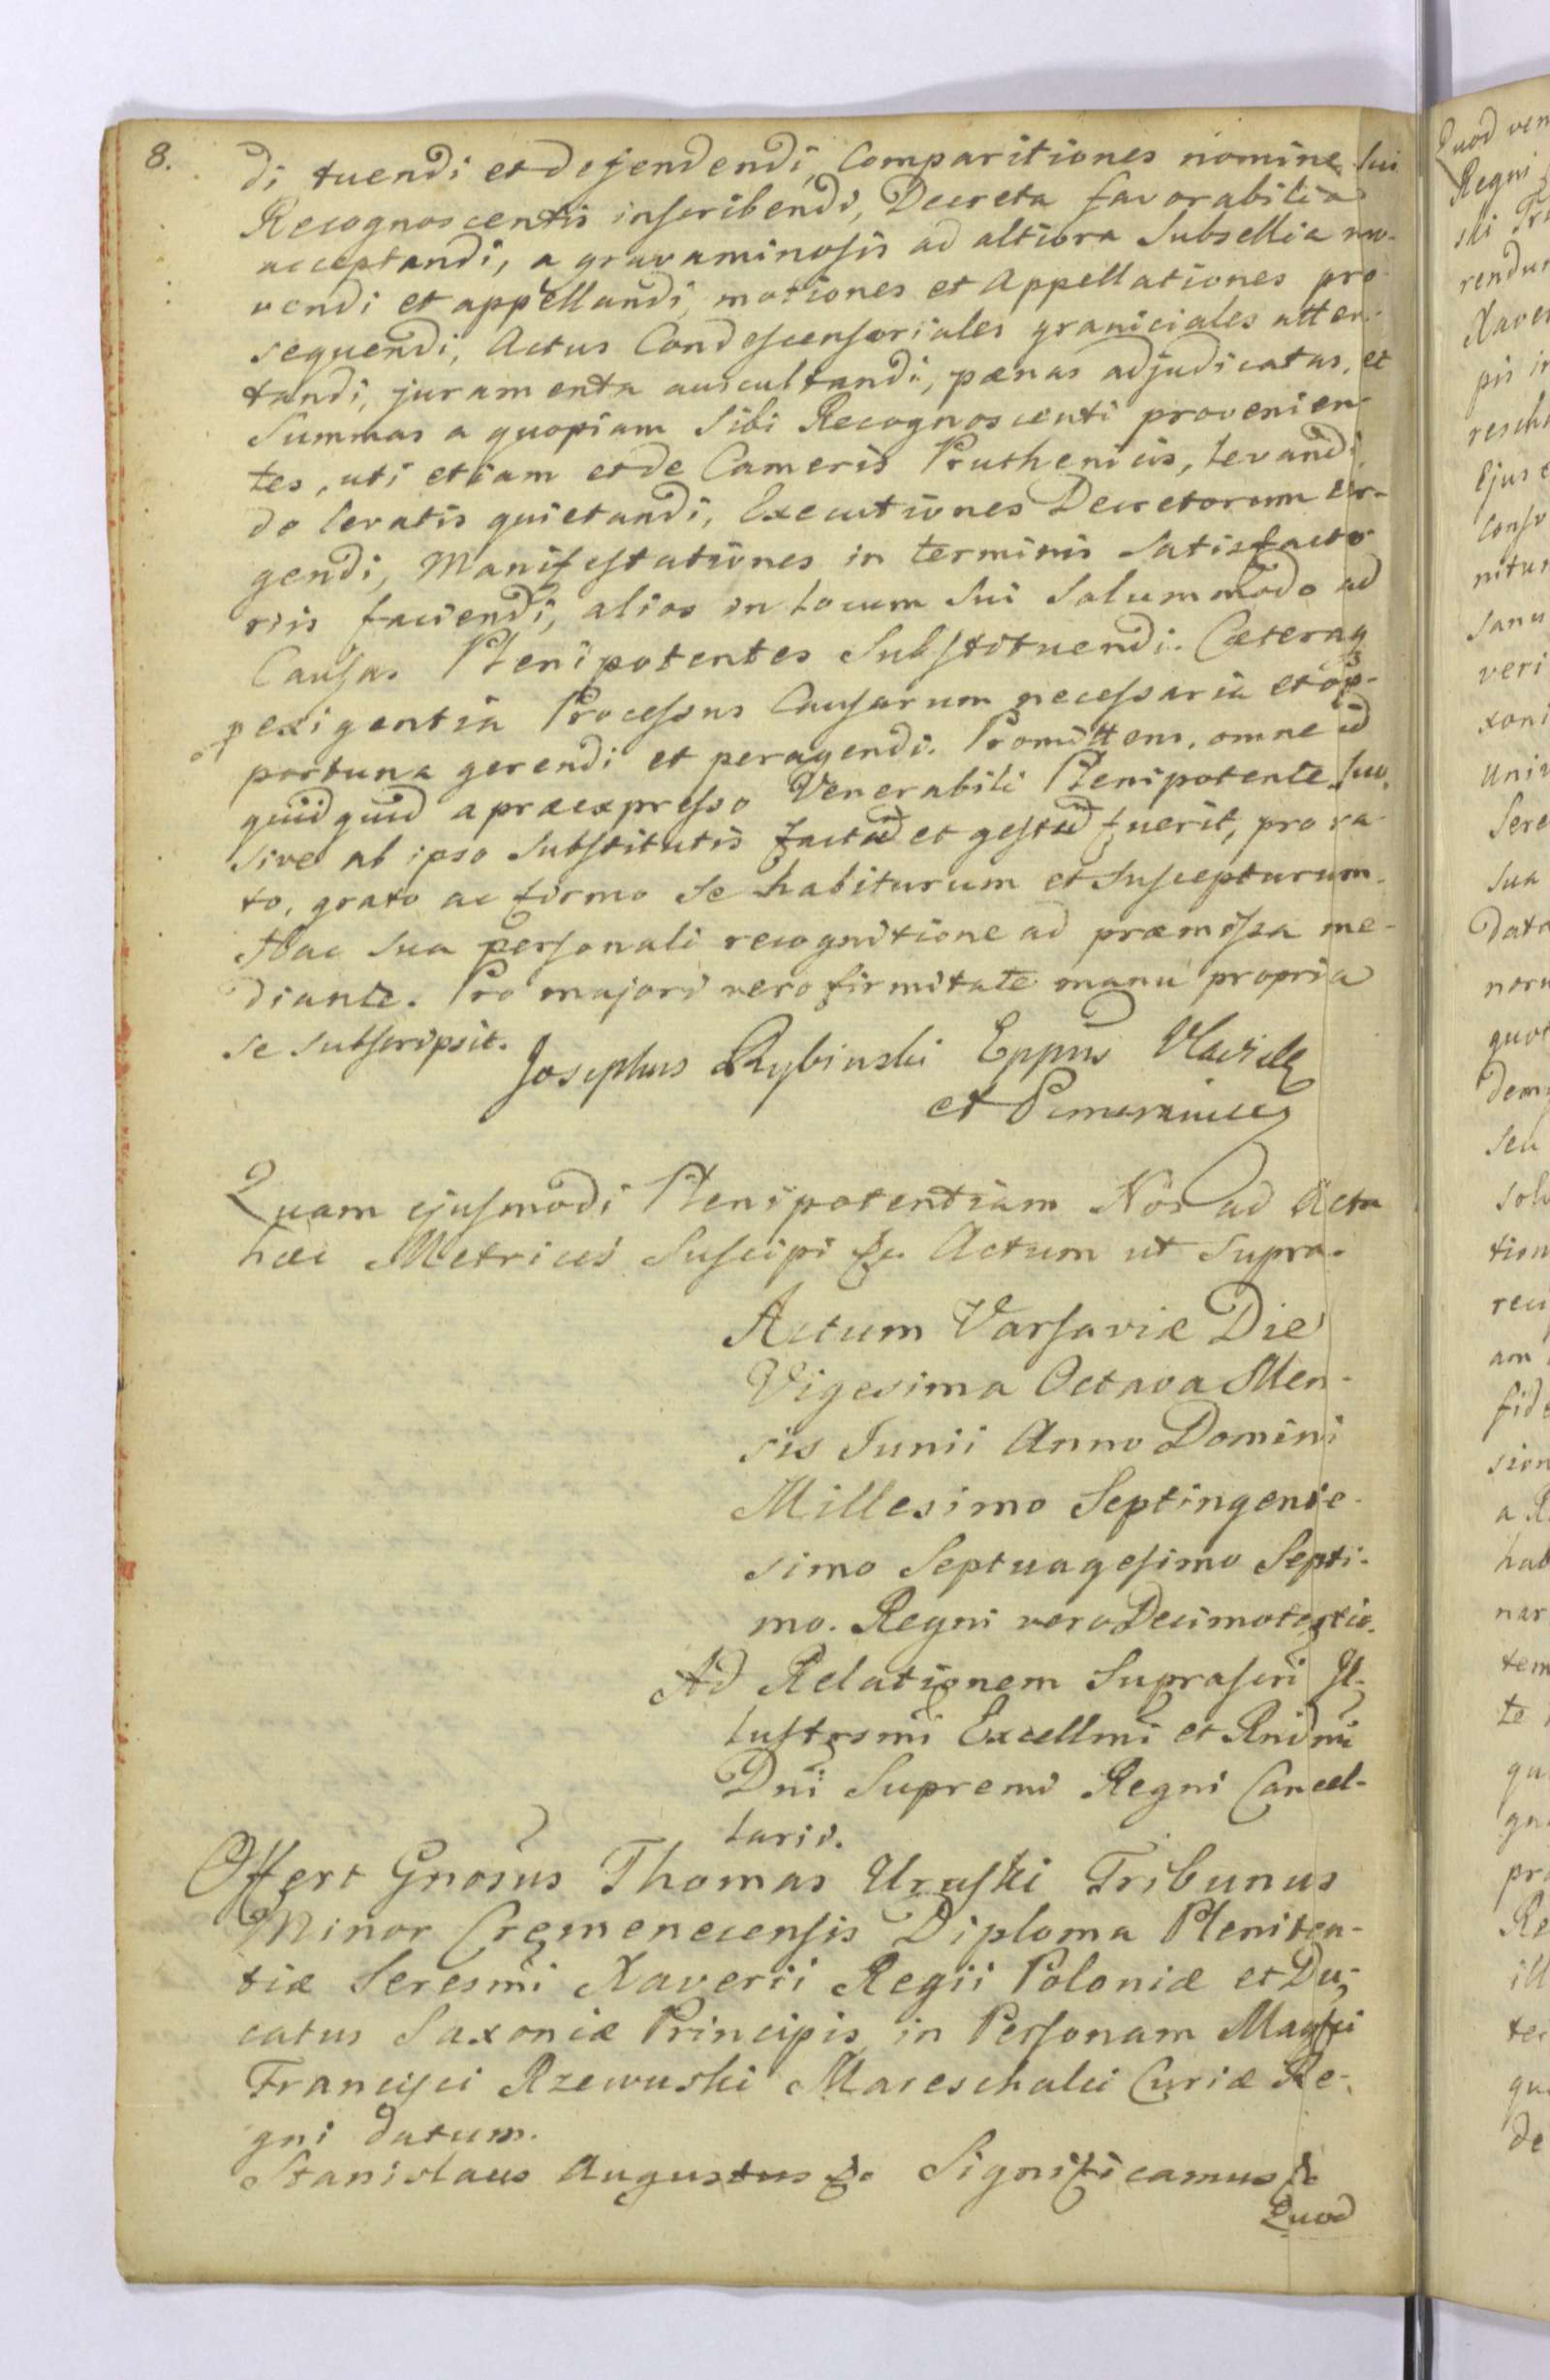 8.
di tuendi et defendendi, Comparitiones nomine Sui
Recognoscentis inscribendi, Decreta favorabilia
acceptandi, a gravaminosis ad altiora Subsellia mo-
vendi et appellandi, motiones et Appellationes pro-
sequendi, Actus Condescensoriales graniciales atten-
tandi, juramenta auscultandi, pænas adjudicatas, et
Summas a quopiam Sibi Recognoscenti provenien-
tes, uti etiam et de Cameris Pruthenicis, levandi
de levatis quietandi, Executiones Decretorum er-
gendi, Manifestationes in terminis Satisfacto-
riis faciendi, alios in locum Sui Solummodo ad
Causas Plenipotentes Substituendi. Cæteraq
exigentia Processus Causarum necessaria et op-
portuna gerendi et peragendi. Promittens, omne id
quidquid a præexpresso Venerabili Plenipotente Suo,
sive ab ipso Substitutis factū et gestū fuerit, pro ra-
to, grato ac firmo se habiturum et Suscepturum.
Hac Sua personali recognitione ad præmissa me-
diante. Pro majori vero firmitate manu propria
se subscripsit.
Josephus Rybinski Eppus Vladisl
et Pomeraniæ
Quam ejusmodi Plenipotentiam Nos ad Acta
hæc Metrices Suscipi &c. Actum ut Supra.
Actum Varsaviæ Die
Vigesima Octava Men-
sis Junii Anno Domini
Millesimo Septingente-
simo Septuagesimo Septi-
mo. Regni vero Decimotertio.
Ad Relationem Suprascri Il-
lustrsmi Excellmi et Rndmi
Dni Supremi Regni Cancel-
larii.
Offert Gnosus Thomas Uruski Tribunus
Minor Cremenecensis Diploma Pleniten-
tiæ Seresmi Xaverii Regii Poloniæ et Du-
catus Saxoniæ Principis, in Personam Magfci
Francisci Rzewuski Mareschalci Curiæ Re-
gni datum.
Stanislaus Augustus &c. Significamus &c
Quod